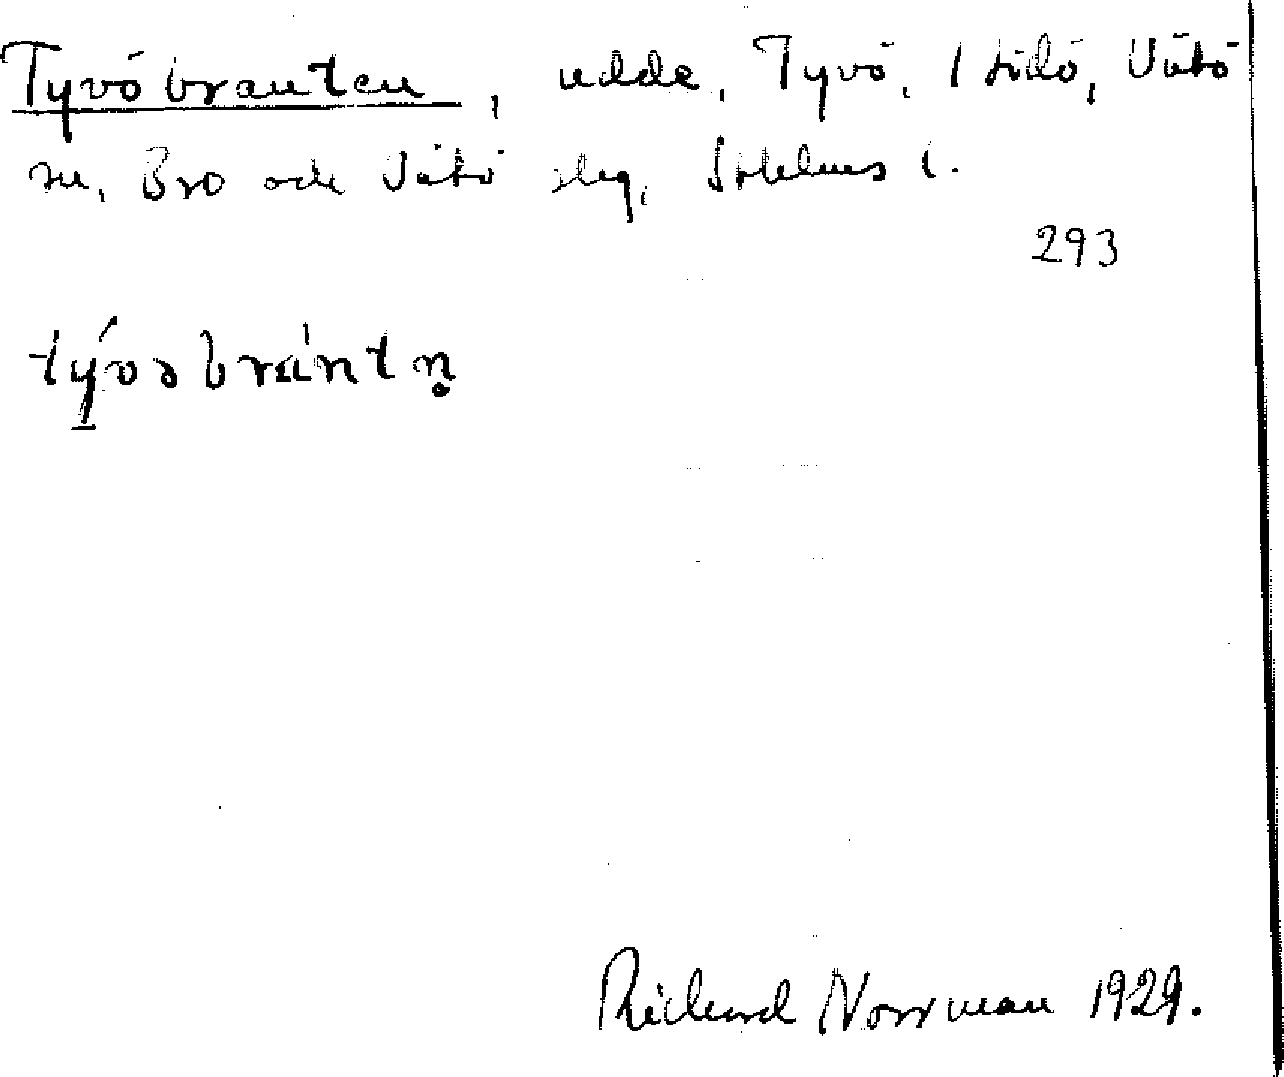 Tyvöbranten, udde, Tyvö, Vätö
sn, Bro och Vätö slg, Sthlms l.
293
tývəbrántn̥
Richard Norrman 1929.